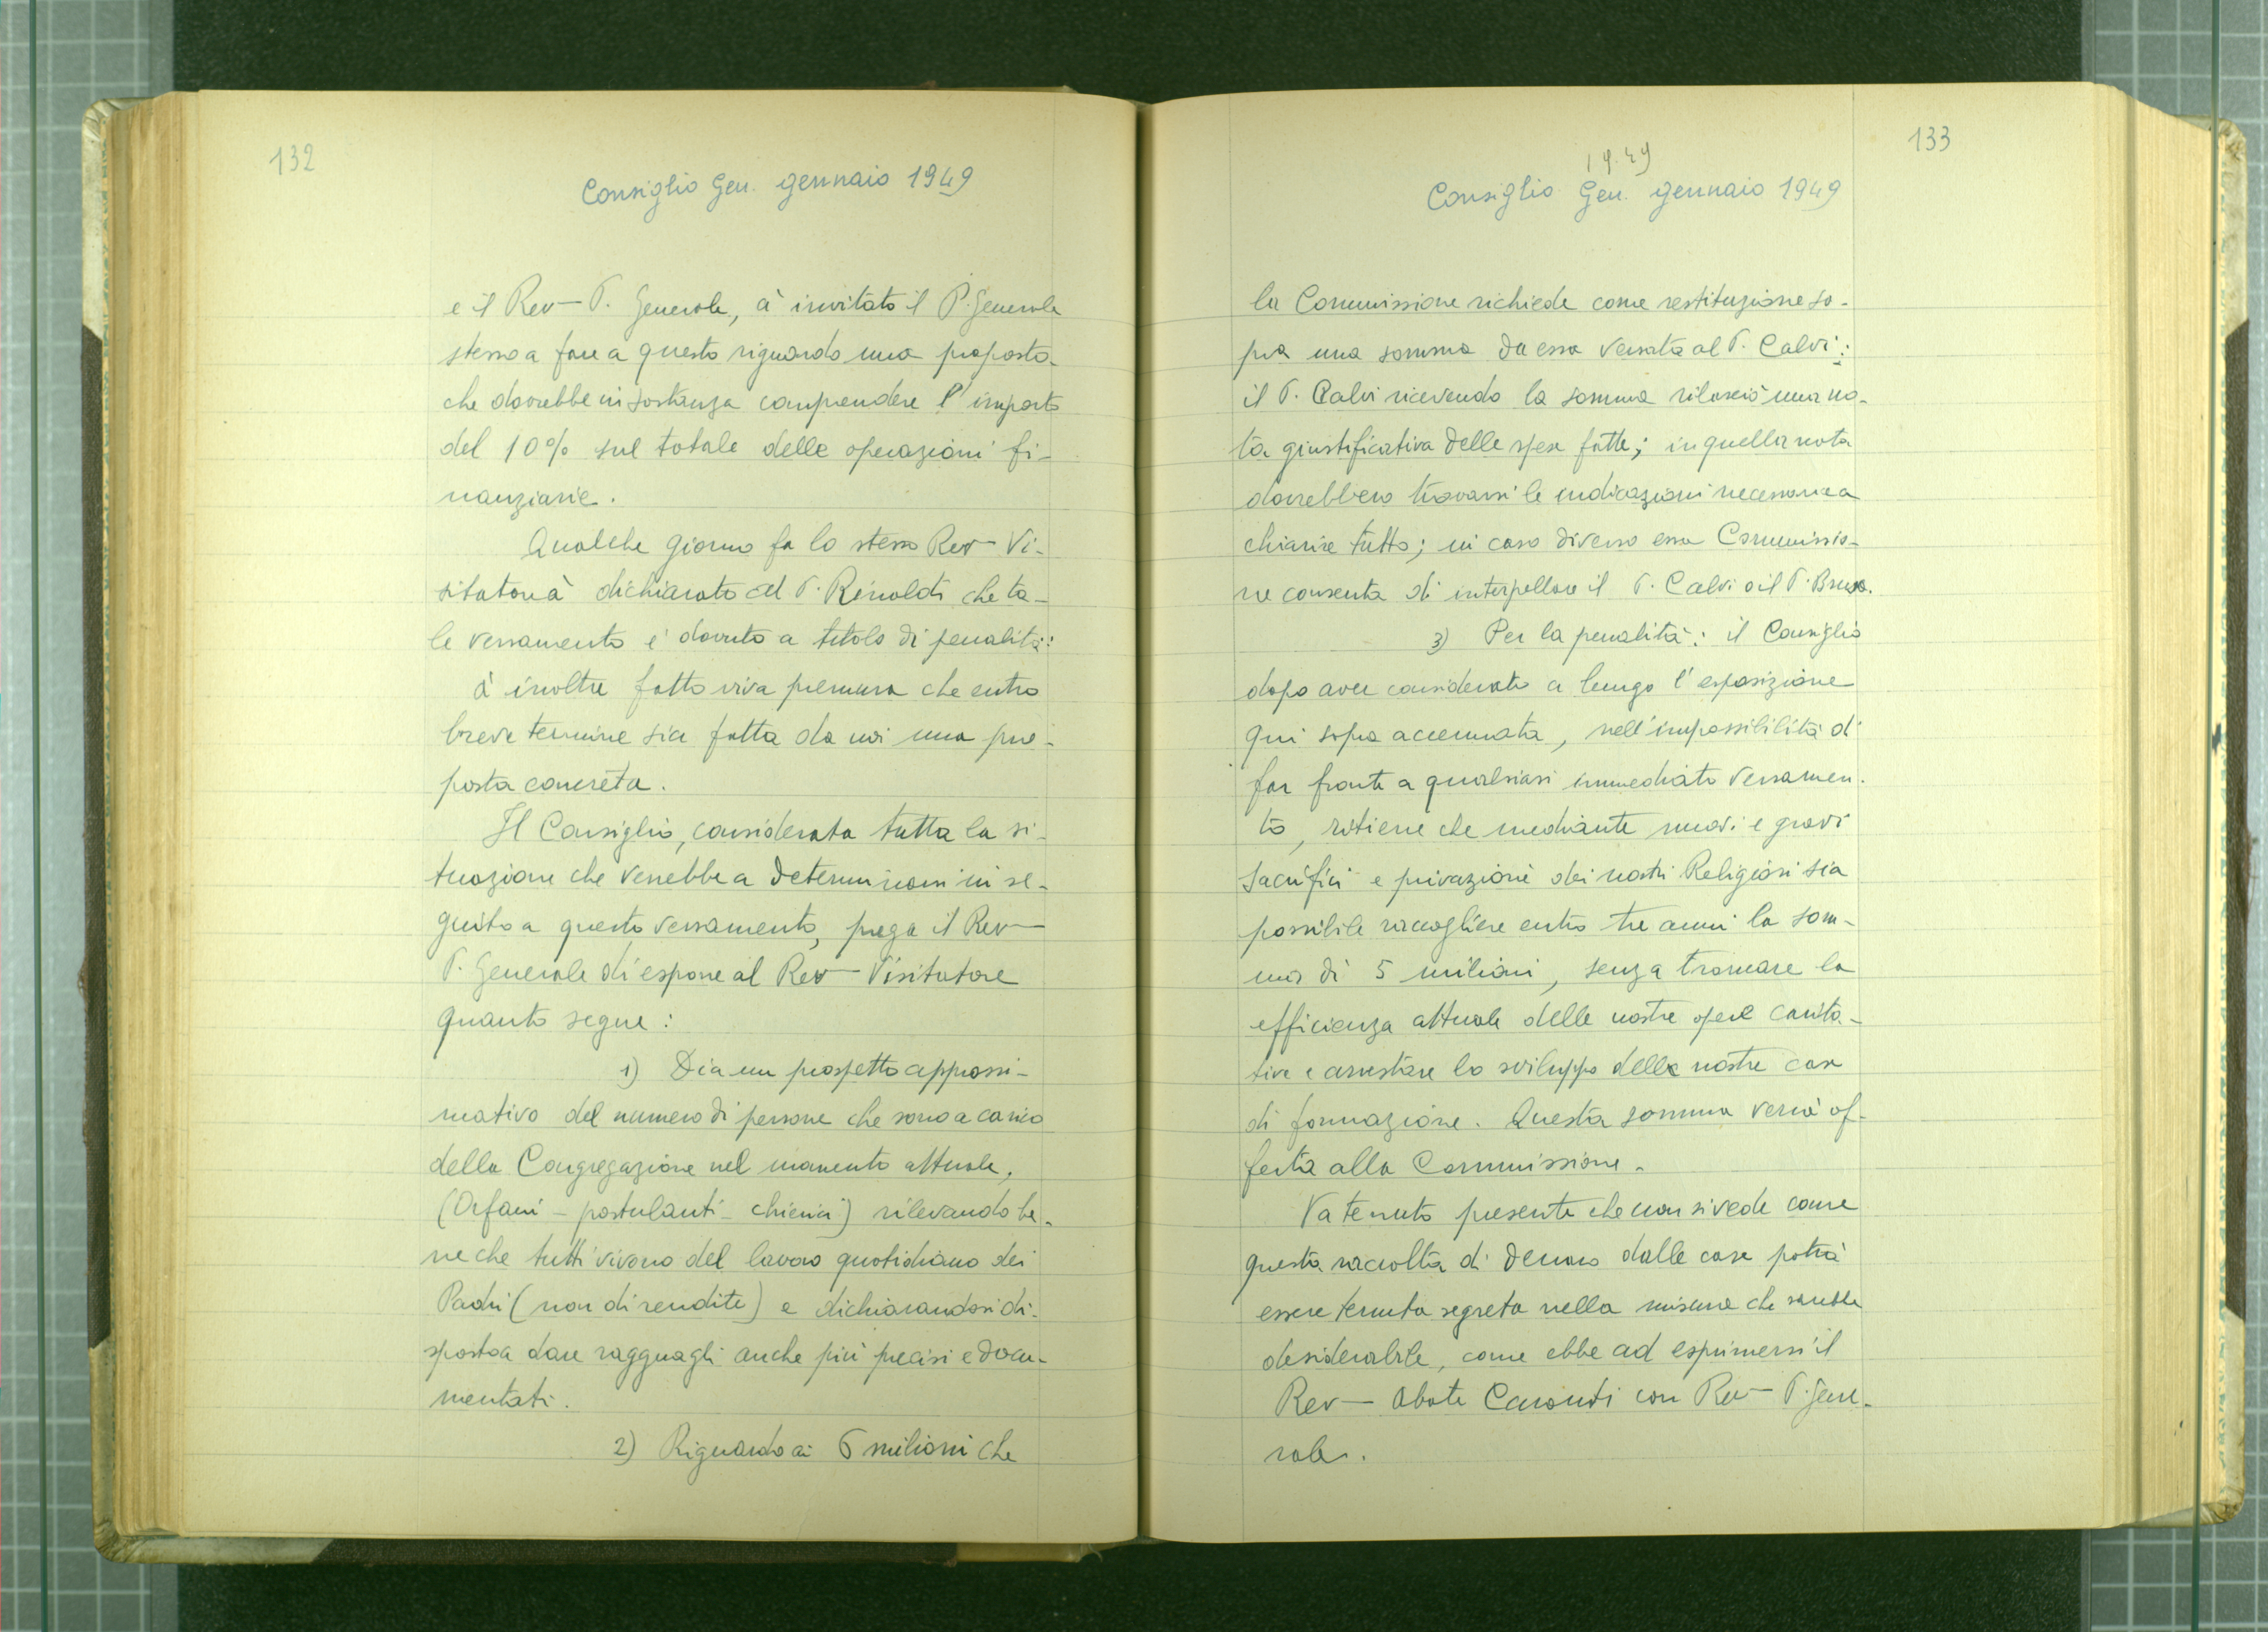 132
Consiglio Gen. gennaio 1949
e il Rev— P. Generale, à invitato il P. Generale
stesso a fare a questo riguardo una proposta
che dovrebbe in sostanza comprendere l'importo
del 10% sul totale delle operazioni fi-
nanziarie.
Qualche giorno fa lo stesso Rev— Vi-
sitatore à dichiarato al P. Rinaldi che ta-
le versamento è dovuto a titolo di penalità:
à inoltre fatto viva premura che entro
breve termine sia fatta da noi una pro-
posta concreta.
Il Consiglio, considerata tutta la si-
tuazione che verrebbe a determinarsi in se-
guito a questo versamento, prega il Rev—
P. Generale di esporre al Rev— Visitatore
quanto segue:
1) Dia un prospetto approssi-
mativo del numero di persone che sono a carico
della Congregazione nel momento attuale,
(Orfani - postulanti - chierici) rilevando be-
ne che tutti vivono del lavoro quotidiano dei
Padri (non di rendite) e dichiarandosi di-
sposto a dare ragguagli anche più precisi e docu-
mentati.
2) Riguardo ai 6 milioni che
133
1949
Consiglio Gen. gennaio 1949
la Commissione richiede come restituzione so-
pra una somma da essa versata al P. Calvi:
il P. Calvi ricevendo la somma rilasciò una no-
ta giustificativa delle spese fatte; in quella nota
dovrebbero trovarsi le indicazioni necessarie a
chiarire tutto; in caso diverso essa Commissio-
ne consenta di interpellare il P. Calvi o il P. Brusa.
3) Per la penalità: il Consiglio
dopo aver considerato a lungo l'esposizione
qui sopra accennata, nell'impossibilità di
far fronte a qualsiasi immediato versamen-
to, ritiene che mediante nuovi e gravi
sacrifici e privazioni dei nostri Religiosi sia
possibile raccogliere entro tre anni la som-
ma di 5 milioni, senza troncare la
efficienza attuale delle nostre opere carita-
tive e arrestare lo sviluppo delle nostre case
di formazione. Questa somma verrà of-
ferta alla Commissione.
Va tenuto presente che non si vede come
questa raccolta di denaro dalle case potrà
essere tenuta segreta nella misura che sarebbe
desiderabile, come ebbe ad esprimersi il
Rev— Abate Caronti con Rev— P. Gene-
rale.